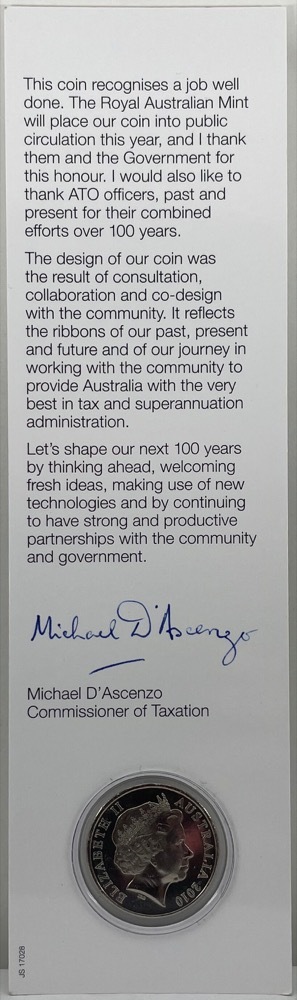 This coin recognises a job well
done. The Royal Australian Mint
will place our coin into public
circulation this year, and I thank
them and the Government for
this honour. I would also like to
thank ATO officers, past and
present for their combined
efforts over 100 years.
The design of our coin was
the result of consultation,
collaboration and co-design
with the community. It reflects
the ribbons of our past, present
and future and of our journey in
working with the community to
provide Australia with the very
best in tax and superannuation
administration.
Let's shape our next 100 years
by thinking ahead, welcoming
fresh ideas, making use of new
technologies and by continuing
to have strong and productive
partnerships with the community
and government.
Michael D'Ascenzo
Michael D'Ascenzo
Commissioner of Taxation
ELIZABETH II AUSTRALIA 2010
JS 17028